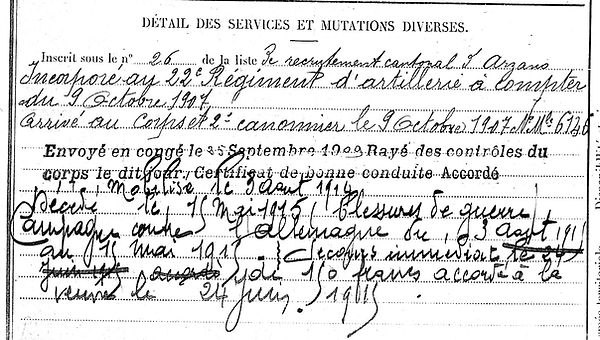 DÉTAIL DES SERVICES ET MUTATIONS DIVERSES.
Inscrit sous le n° 26 de la liste de recrutement cantonal d'Arzano
Incorporé au 22e Régiment d'artillerie à compter
du 9 Octobre 1907
arrivé au corps et 2e canonnier le 9 Octobre 1907 N° Mle 6136
Envoyé en congé le 25 Septembre 1909 Rayé des contrôles du
corps le dit jour, Certificat de bonne conduite Accordé
Mobilisé le 3 août 1914
Décédé le 15 Mai 1915 blessures de guerre
Campagne contre l'Allemagne du 3 août 191
au 15 mai 1915 Secours immédiat le 29
juin 1915 accordé de 150 francs accordé à la
veuve le 24 juin 1915